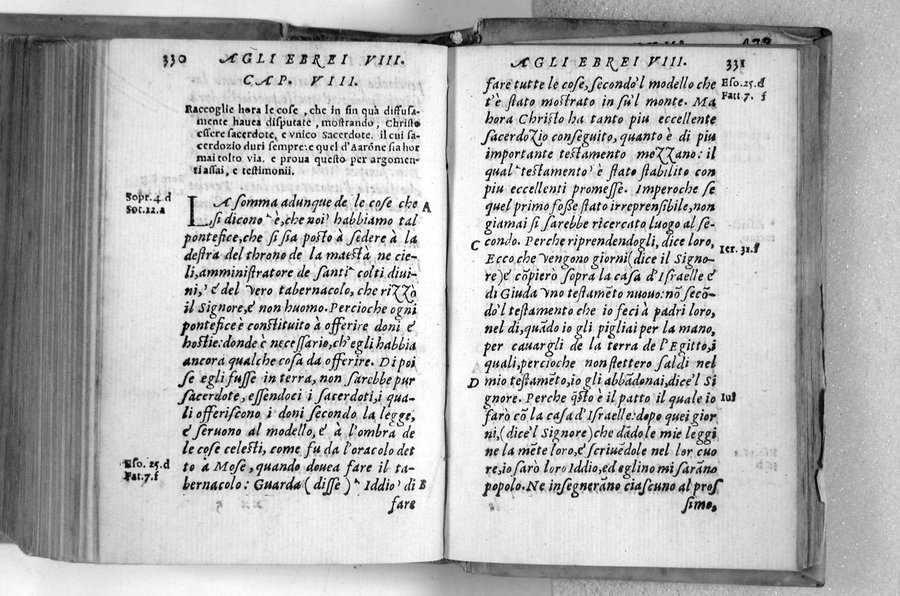 330 AGLI EBREI VIII.
CAP. VIII.
Raccoglie hora le cose, che in sin quà diffusa-
mente hauea disputate, mostrando, Christo
essere sacerdote, e vnico Sacerdote. il cui sa-
cerdozio duri sempre: e quel d'Aarône sia hor
mai tolto via. e proua questo per argomen-
ti assai, e testimonii.
Sopr. 4. d
Sot. 12. a
LA somma adunque de le cose che A
si dicono è, che noi habbiamo tal
pontefice, che si sia posto à sedere à la
destra del throno de la maestà ne cie-
li, amministratore de santi colti diui-
ni, e del vero tabernacolo, che rizzò
il Signore, e non huomo. Percioche ogni
pontefice è constituito à offerire doni e
hostie: donde è necessario, ch'egli habbia
ancora qualche cosa da offerire. Di poi
se egli fusse in terra, non sarebbe pur
sacerdote, essendoci i sacerdoti, i qua-
li offeriscono i doni secondo la legge,
e seruono al modello, e à l'ombra de
le cose celesti, come fu da l'oracolo det
to a Mose, quando douea fare il ta-
bernacolo: Guarda (disse) Iddio di B
Eso. 25. d
Fat. 7. f
fare
AGLI EBREI VIII. 331
fare tutte le cose, secondo'l modello che
t'è stato mostrato in sù'l monte. Ma
hora Christo ha tanto piu eccellente
sacerdozio conseguito, quanto è di piu
importante testamento mezzano: il
qual testamento è stato stabilito con
piu eccellenti promesse. Imperoche se
quel primo fosse stato irreprensibile, non
giamai si sarebbe ricercato luogo al se-
C condo. Perche riprendendogli, dice loro,
Ecco, che vengono giorni (dice il Signo-
re) e cõpierò sopra la casa d'Israelle e
di Giuda vno testamẽto nuouo: nõ secõ-
do'l testamento che io feci à padri loro,
nel dì, quãdo io gli pigliai per la mano,
per cauargli de la terra de l'Egitto, i
quali, percioche non stettero saldi nel
D mio testamẽto, io gli abbãdonai, dice'l Si
gnore. Perche q̃sto è il patto il quale io
farò cõ la casa d'Israelle: dopo quei gior
ni, (dice'l Signore) che dãdo le mie leggi
ne la mẽte loro, e scriuẽdole nel lor cuo
re, io sarò loro Iddio, ed eglino mi sarãno
popolo. Ne insegnerãno ciascuno al pros
simo,
Eso. 25. d
Fatt. 7. f
Ier. 31. f